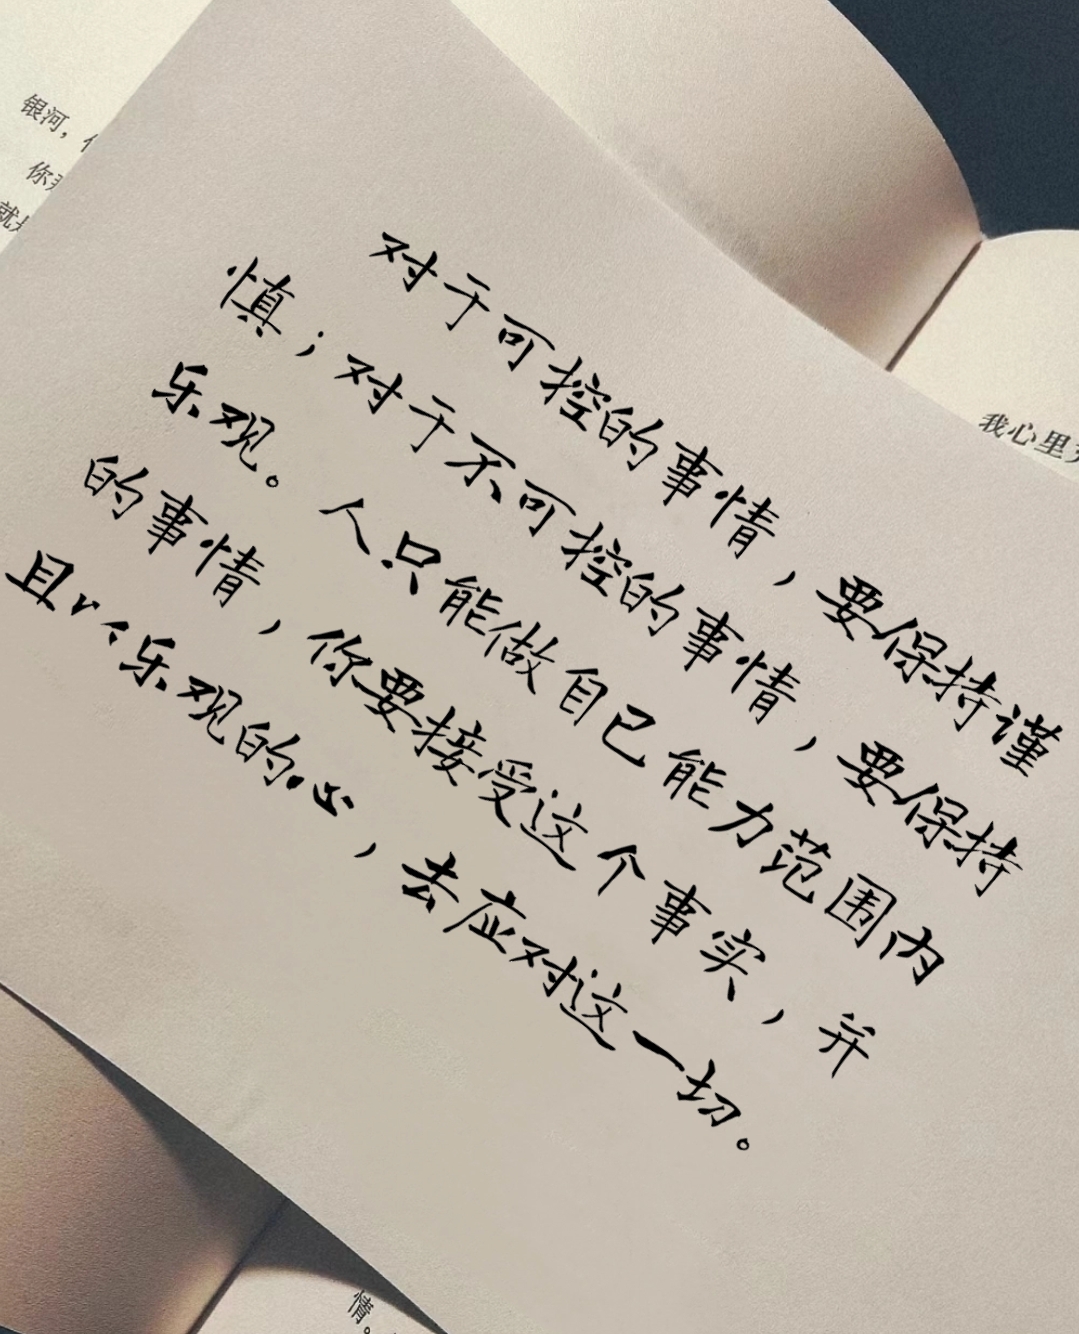 银河，
你
就是
我心里
对于可控的事情，要保持谨
慎；对于不可控的事情，要保持
乐观。人只能做自己能力范围内
的事情，你要接受这个事实，并
且以乐观的心，去应对这一切。
情。